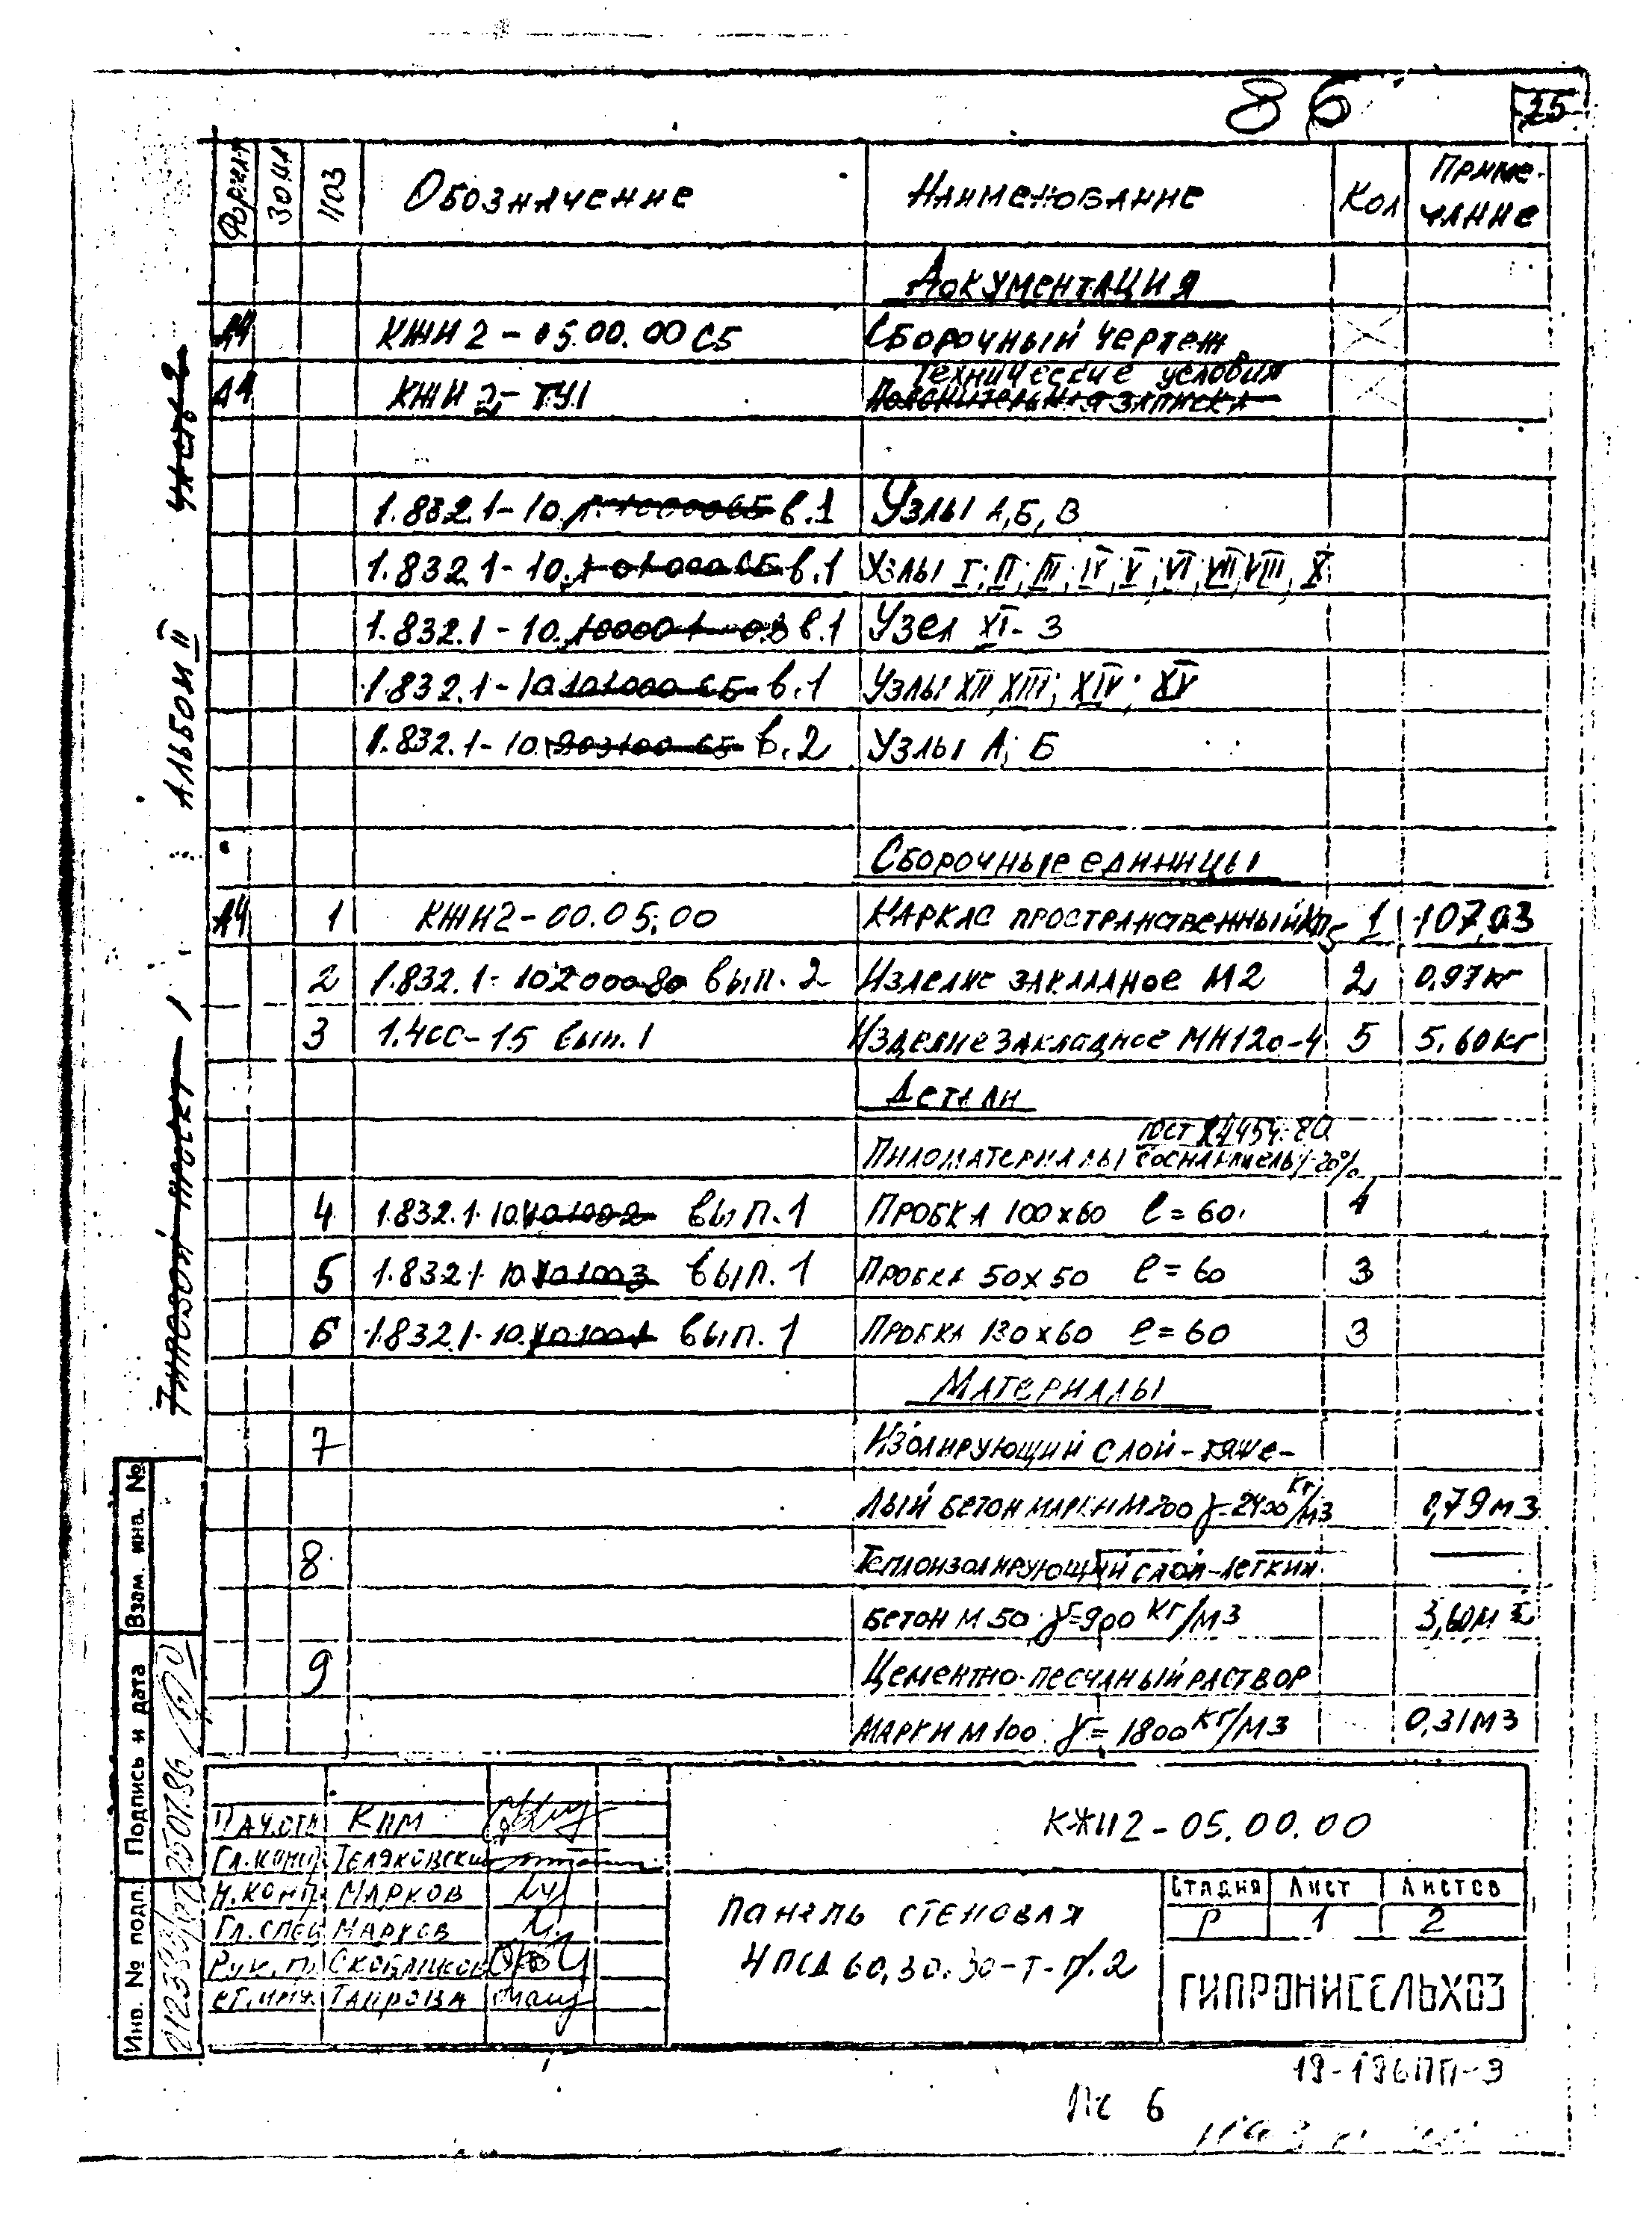 86
25
Формат Зона Поз Обозначение Наименование Кол Примечание
Документация
А4 КЖИ2-05.00.00 СБ Сборочный чертеж
А4 КЖИ2-ТУ1 Технические условия
Пояснительная записка
1.832.1-10. в.1 Узлы А, Б, В
1.832.1-10. в.1 Узлы I; II; III; IV; V; VI; VII; VIII, X
1.832.1-10. в.1 Узел XI-3
1.832.1-10.101000 СБ в.1 Узлы XII, XIII; XIV; XV
1.832.1-10. в.2 Узлы А; Б
Сборочные единицы
А4 1 КЖИ2-00.05.00 Каркас пространственный КП5 1 107,03
2 1.832.1-102000-80 вып. 2 Изделие закладное М2 2 0,97 кг
3 1.400-15 вып. 1 Изделие закладное МН120-4 5 5,60 кг
Детали
ГОСТ 24454-80
Пиломатериалы
4 1.832.1-10. вып. 1 Пробка 100×60 ℓ=60 4
5 1.832.1-10. вып. 1 Пробка 50×50 ℓ=60 3
6 1.832.1-10. вып. 1 Пробка 130×60 ℓ=60 3
Материалы
7 Изолирующий слой - тяже-
лый бетон марки М200 γ=2400 кг/м3 0,79 м3
8 Теплоизолирующий слой - легкий
бетон М50 γ=900 кг/м3 3,60 м3
9 Цементно-песчаный раствор
марки М100 γ=1800 кг/м3 0,31 м3
Типовой проект 1
Альбом II
часть 2
Взам. инв. №
Подпись и дата
25.07.86
Инв. № подл.
Нач.отд Ким
Гл.конс. Теляковский
Н.конт. Марков
Гл.спец Марков
Рук.гр. Скобликов
Ст.инж. Таирова
КЖИ2-05.00.00
Панель стеновая
НПСД 60.30.30-Т-П.2
Стадия Лист Листов
Р 1 2
ГИПРОНИСЕЛЬХОЗ
19-196ПП-9
Пс 6